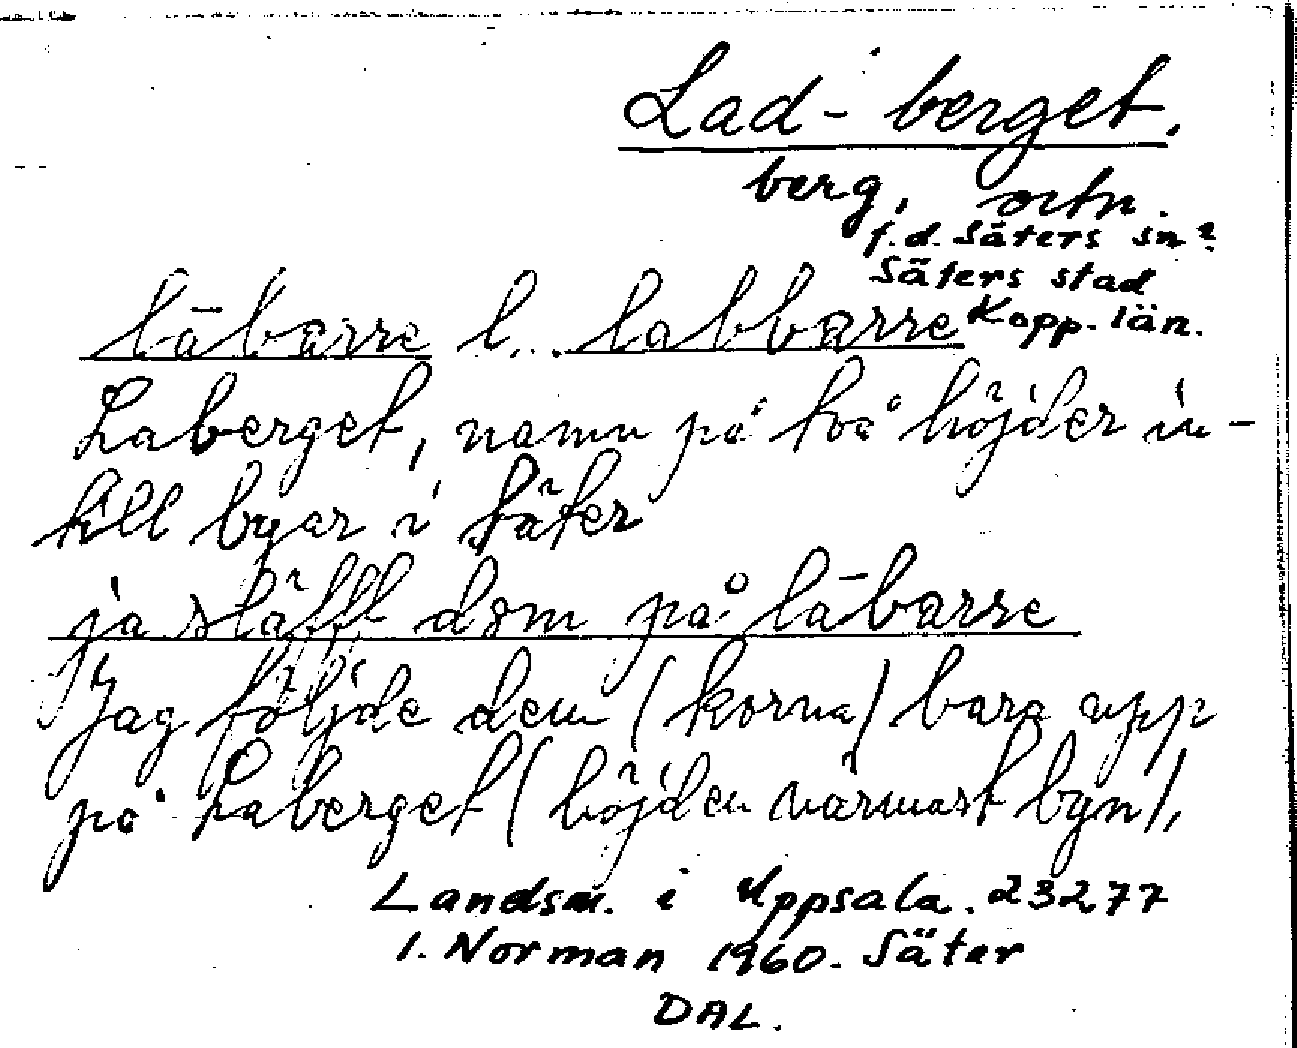 Lad-berget.
berg, ortn.
f.d. Säters sn?
Säters stad
Kopp. län.
läbarre l... labbarre
Laberget, namn på två höjder in-
till byar i Säter
ja släfft dom på läbarre
Jag följde dem (korna) bara upp
på Laberget (höjden närmast byn),
Landsm. i Uppsala. 23277
I. Norman 1960. Säter
DAL.